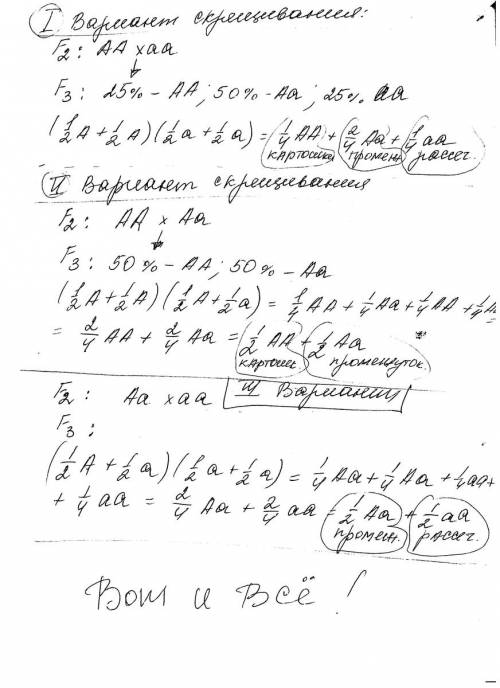 I Вариант скрещивания:
F2: AA x aa
F3: 25% - AA; 50% - Aa; 25% aa
(1/2 A + 1/2 A) (1/2 a + 1/2 a) = 1/4 AA + 2/4 Aa + 1/4 aa
промеж. рассеч.
II Вариант скрещивания
F2: AA x Aa
F3: 50% - AA; 50% - Aa
(1/2 A + 1/2 A) (1/2 A + 1/2 a) = 1/4 AA + 1/4 Aa + 1/4 AA + 1/4
= 2/4 AA + 2/4 Aa = 1/2 AA + 1/2 Aa
картошк. промежуток.
F2: Aa x aa III Вариант
F3:
(1/2 A + 1/2 a) (1/2 a + 1/2 a) = 1/4 Aa + 1/4 Aa + 1/4 aa +
+ 1/4 aa = 2/4 Aa + 2/4 aa = 1/2 Aa + 1/2 aa
промеж. рассеч.
Вот и Всё!